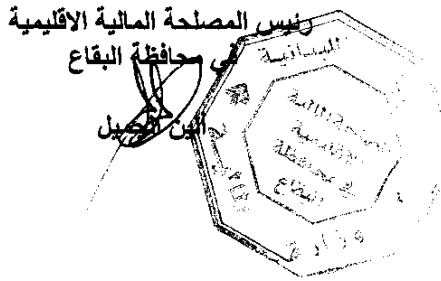 رئيس المصلحة المالية الاقليمية
في محافظة البقاع
اللبنانية
المصلحة المالية
الاقليمية
في محافظة
البقاع
وزارة